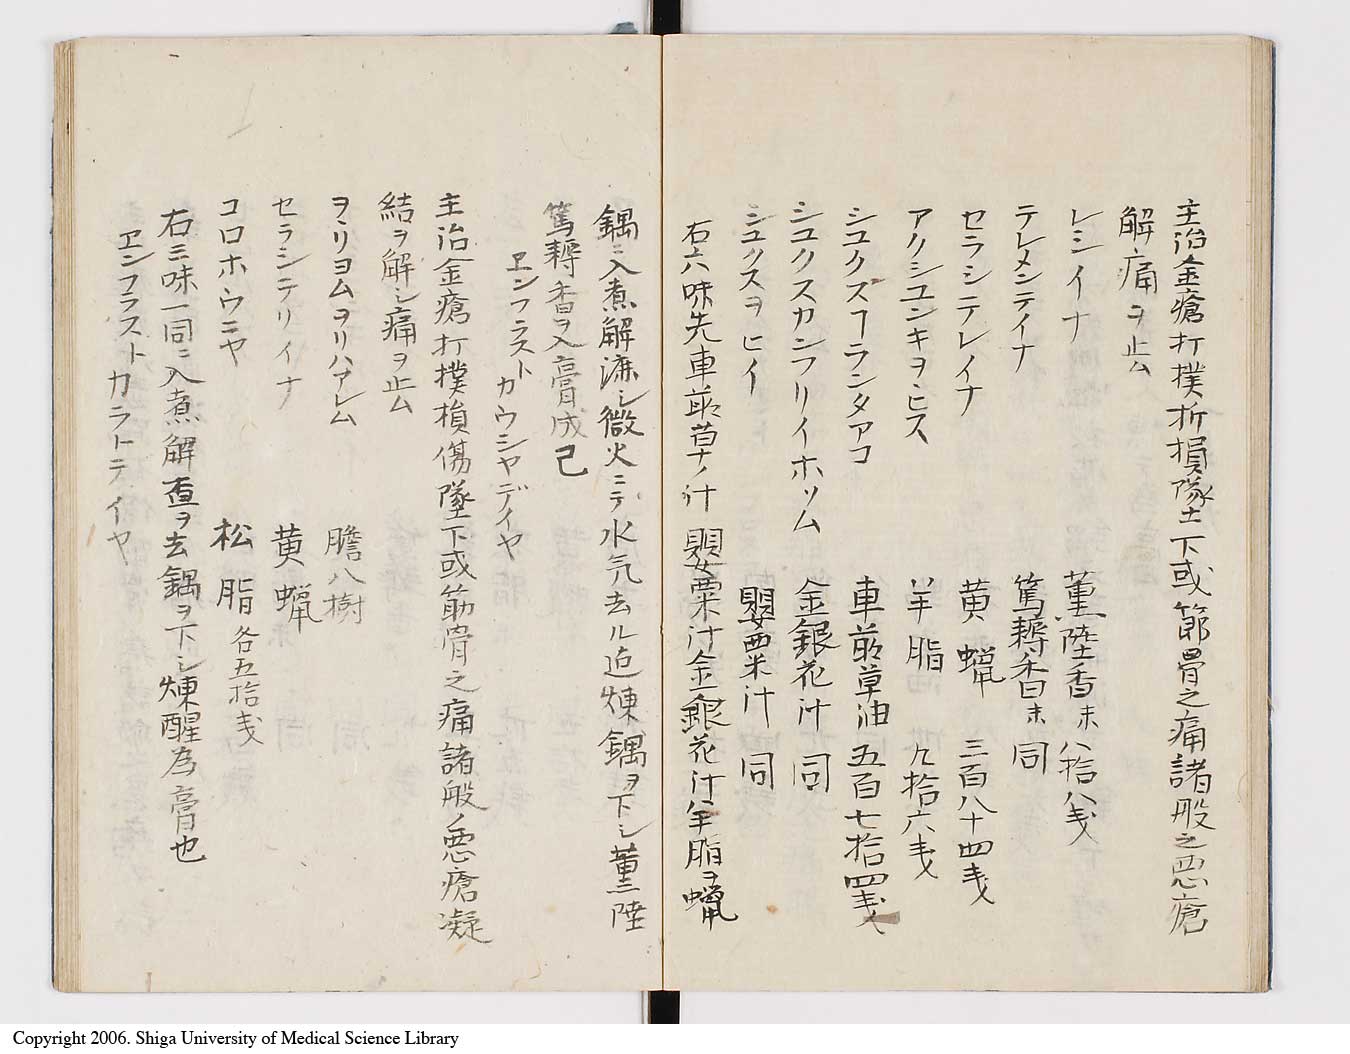 主治金瘡打撲折損隊土下或節骨之痛諸般之悪瘡
解痛ヲ止ム
レシイナ 薫陸香末 八拾八戔
テレメンテイナ 篤耨香末 同
セラシテレイナ 黄蝋 三百八十四戔
アクシユンキヲヒス 羊脂 九拾六戔
シユクスフランタアコ 車前草油 五百七拾四戔
シユクスカンフリイホツム 金銀花汁 同
シユクスヲヒイ 罌粟汁 同
右六味先車前草ノ汁罌粟汁金銀花汁羊脂ヲ蝋
鍋ニ入煮解漉シ微火ニテ水気去ル迄煉鍋ヲ下シ薫陸
篤耨香ヲ入膏成己
ヱンフラスト カウシヤデイヤ
主治金瘡打撲損傷墜下或筋骨之痛諸般ノ悪瘡凝
結ヲ解シ痛ヲ止ム
ヲリヨムヲリハアレム 膽八樹
セラシテリイナ 黄蝋
コロホウニヤ 松脂 各五拾戔
右三味一同ニ入煮解査ヲ去鍋ヲ下シ煉醒為膏也
ヱンフラストカラトテイヤ
Copyright 2006. Shiga University of Medical Science Library